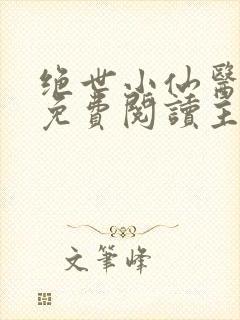 绝世小仙醫
免費閱讀主
文筆峰